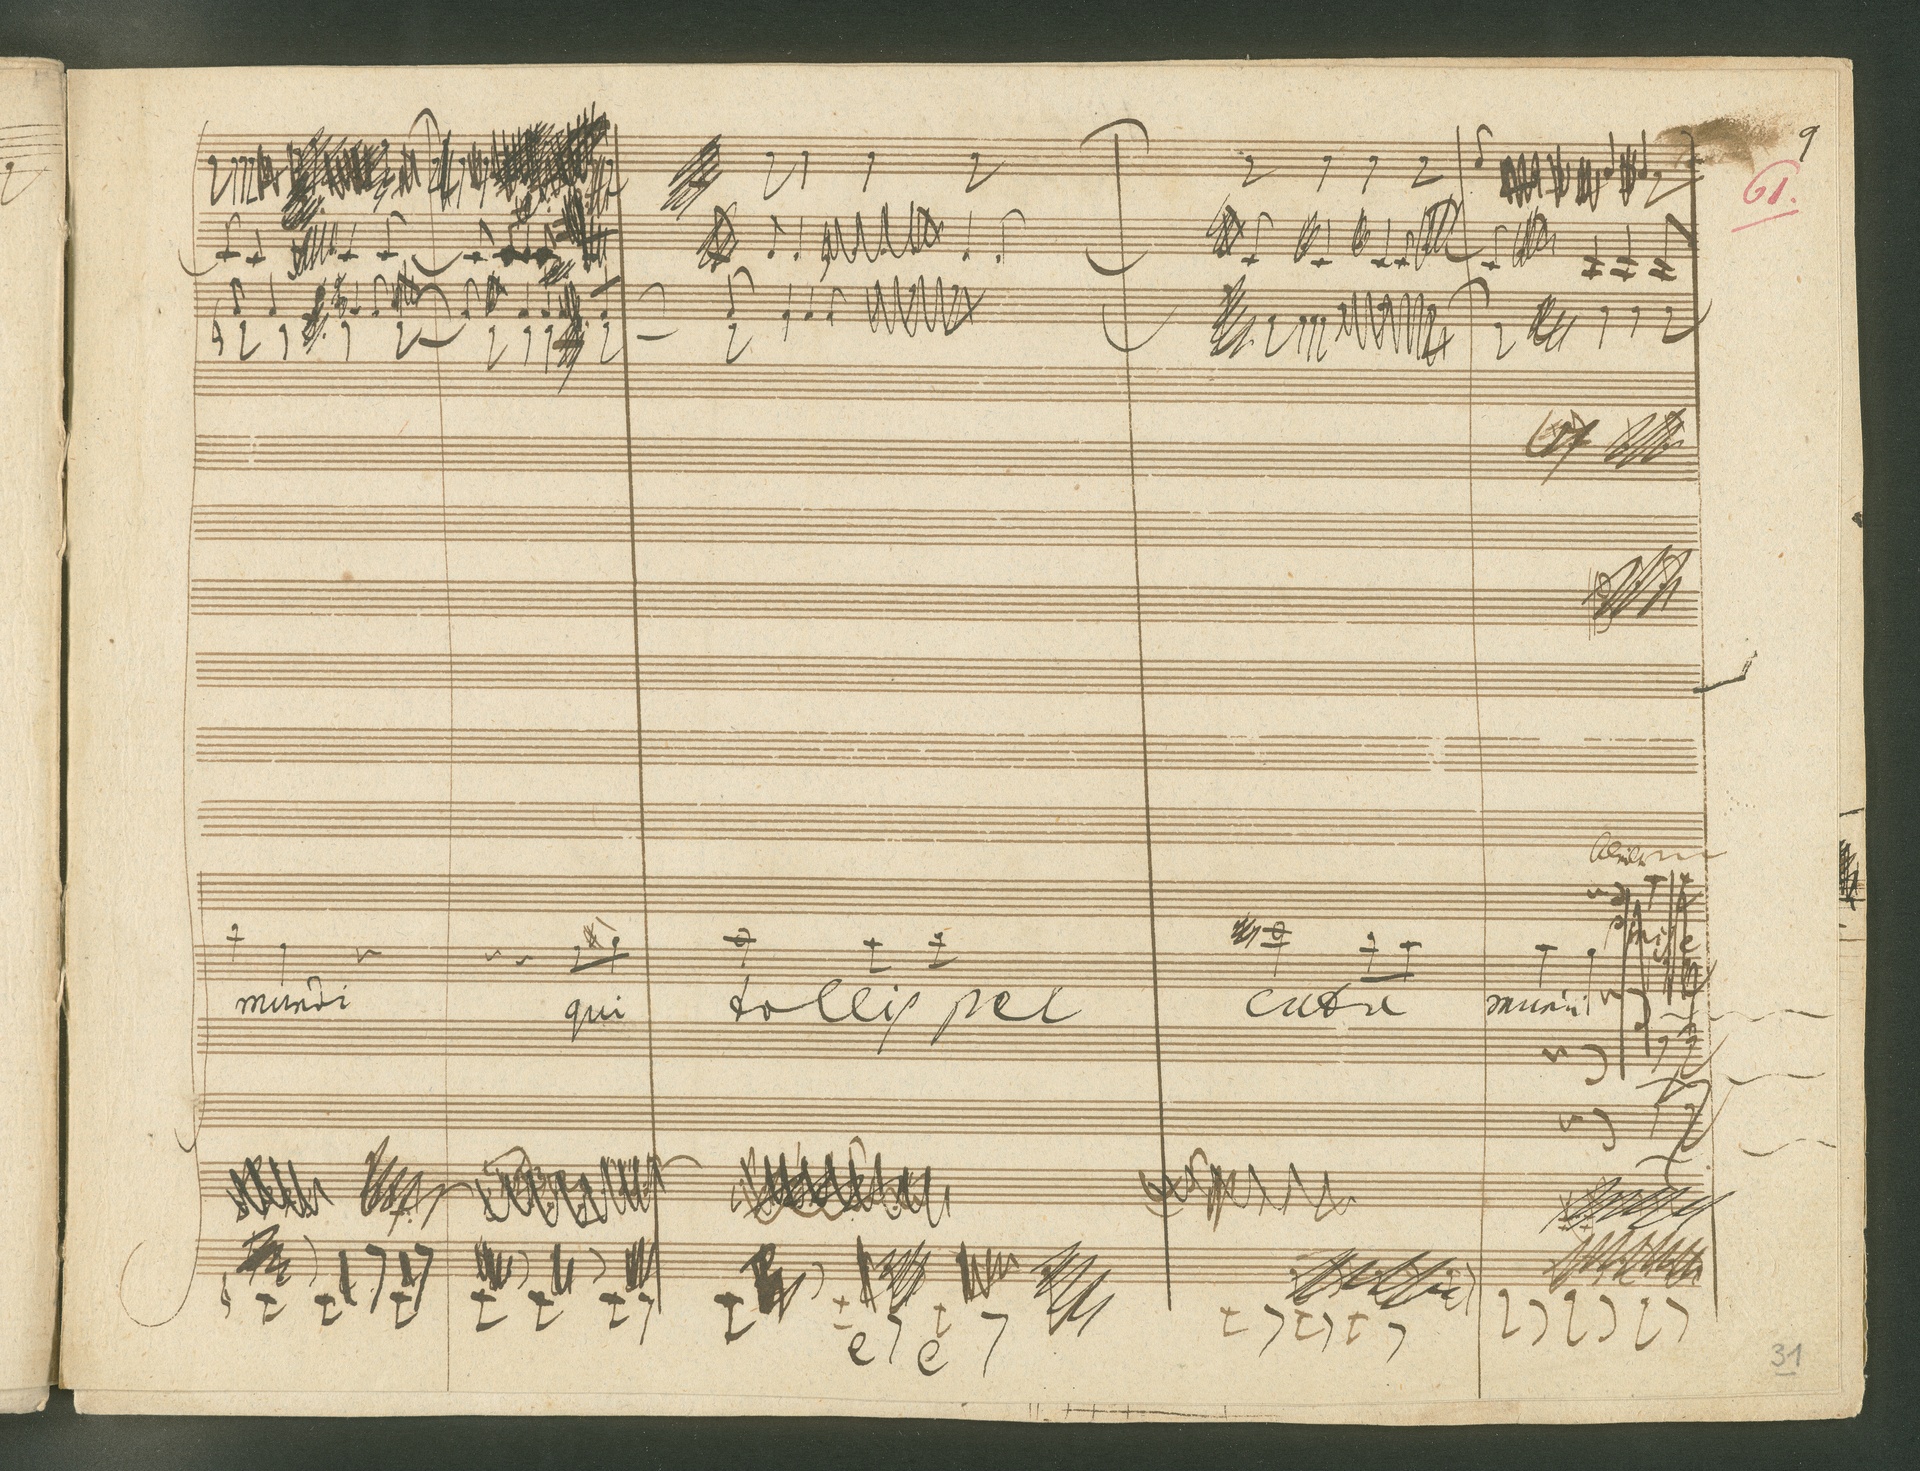 9
61.
mundi qui tollis pec cata mundi
e e
31